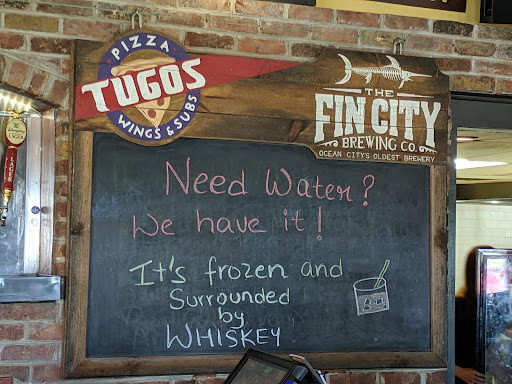 PIZZA
TUGOS
WINGS & SUBS
THE
FIN CITY
BREWING CO.
OCEAN CITY'S OLDEST BREWERY
Need Water?
We have it!
It's frozen and
Surrounded
by
WHISKEY
LAGER